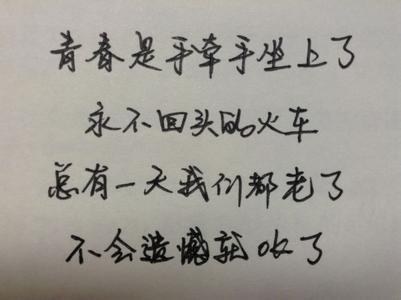 青春是手牵手坐上了
永不回头的火车
总有一天我们都老了
不会遗憾就OK了